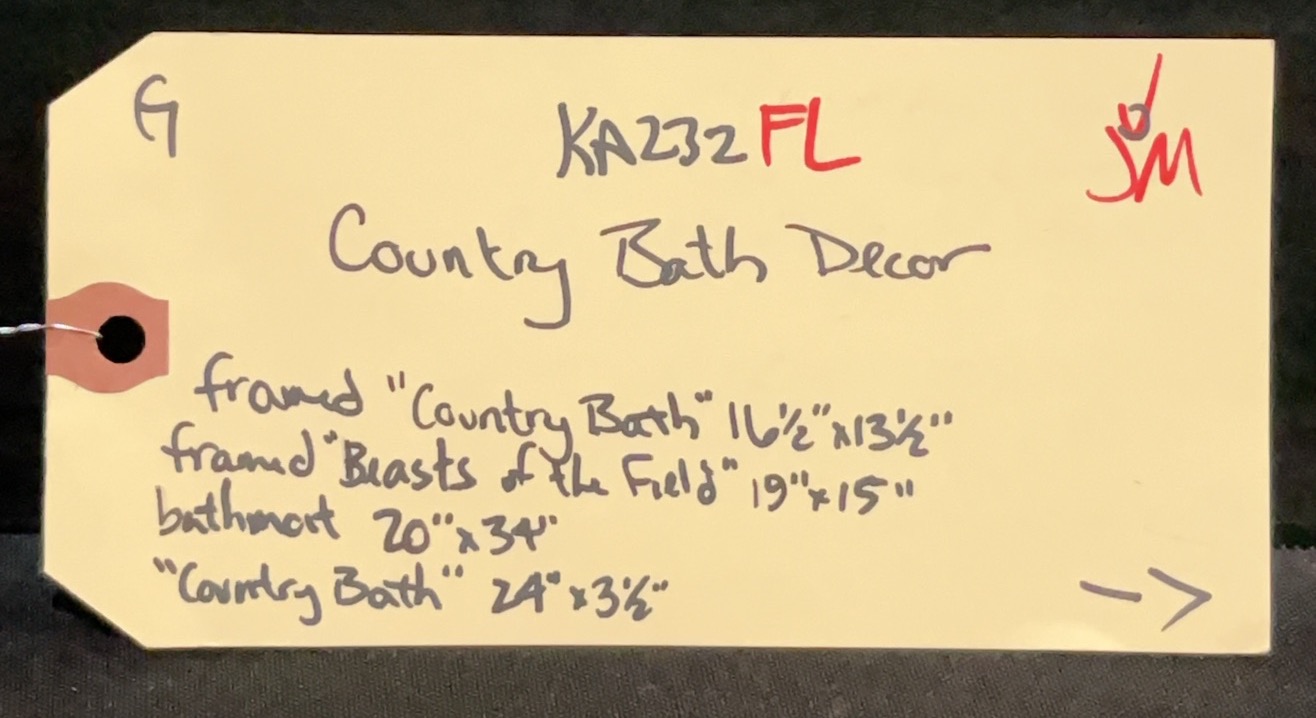 G
KA232 FL
JM
Country Bath Decor
framed "Country Bath" 16½"x13½"
framed "Beasts of the Field" 19"x15"
bathmat 20"x34"
"Country Bath" 24"x3½"
-->